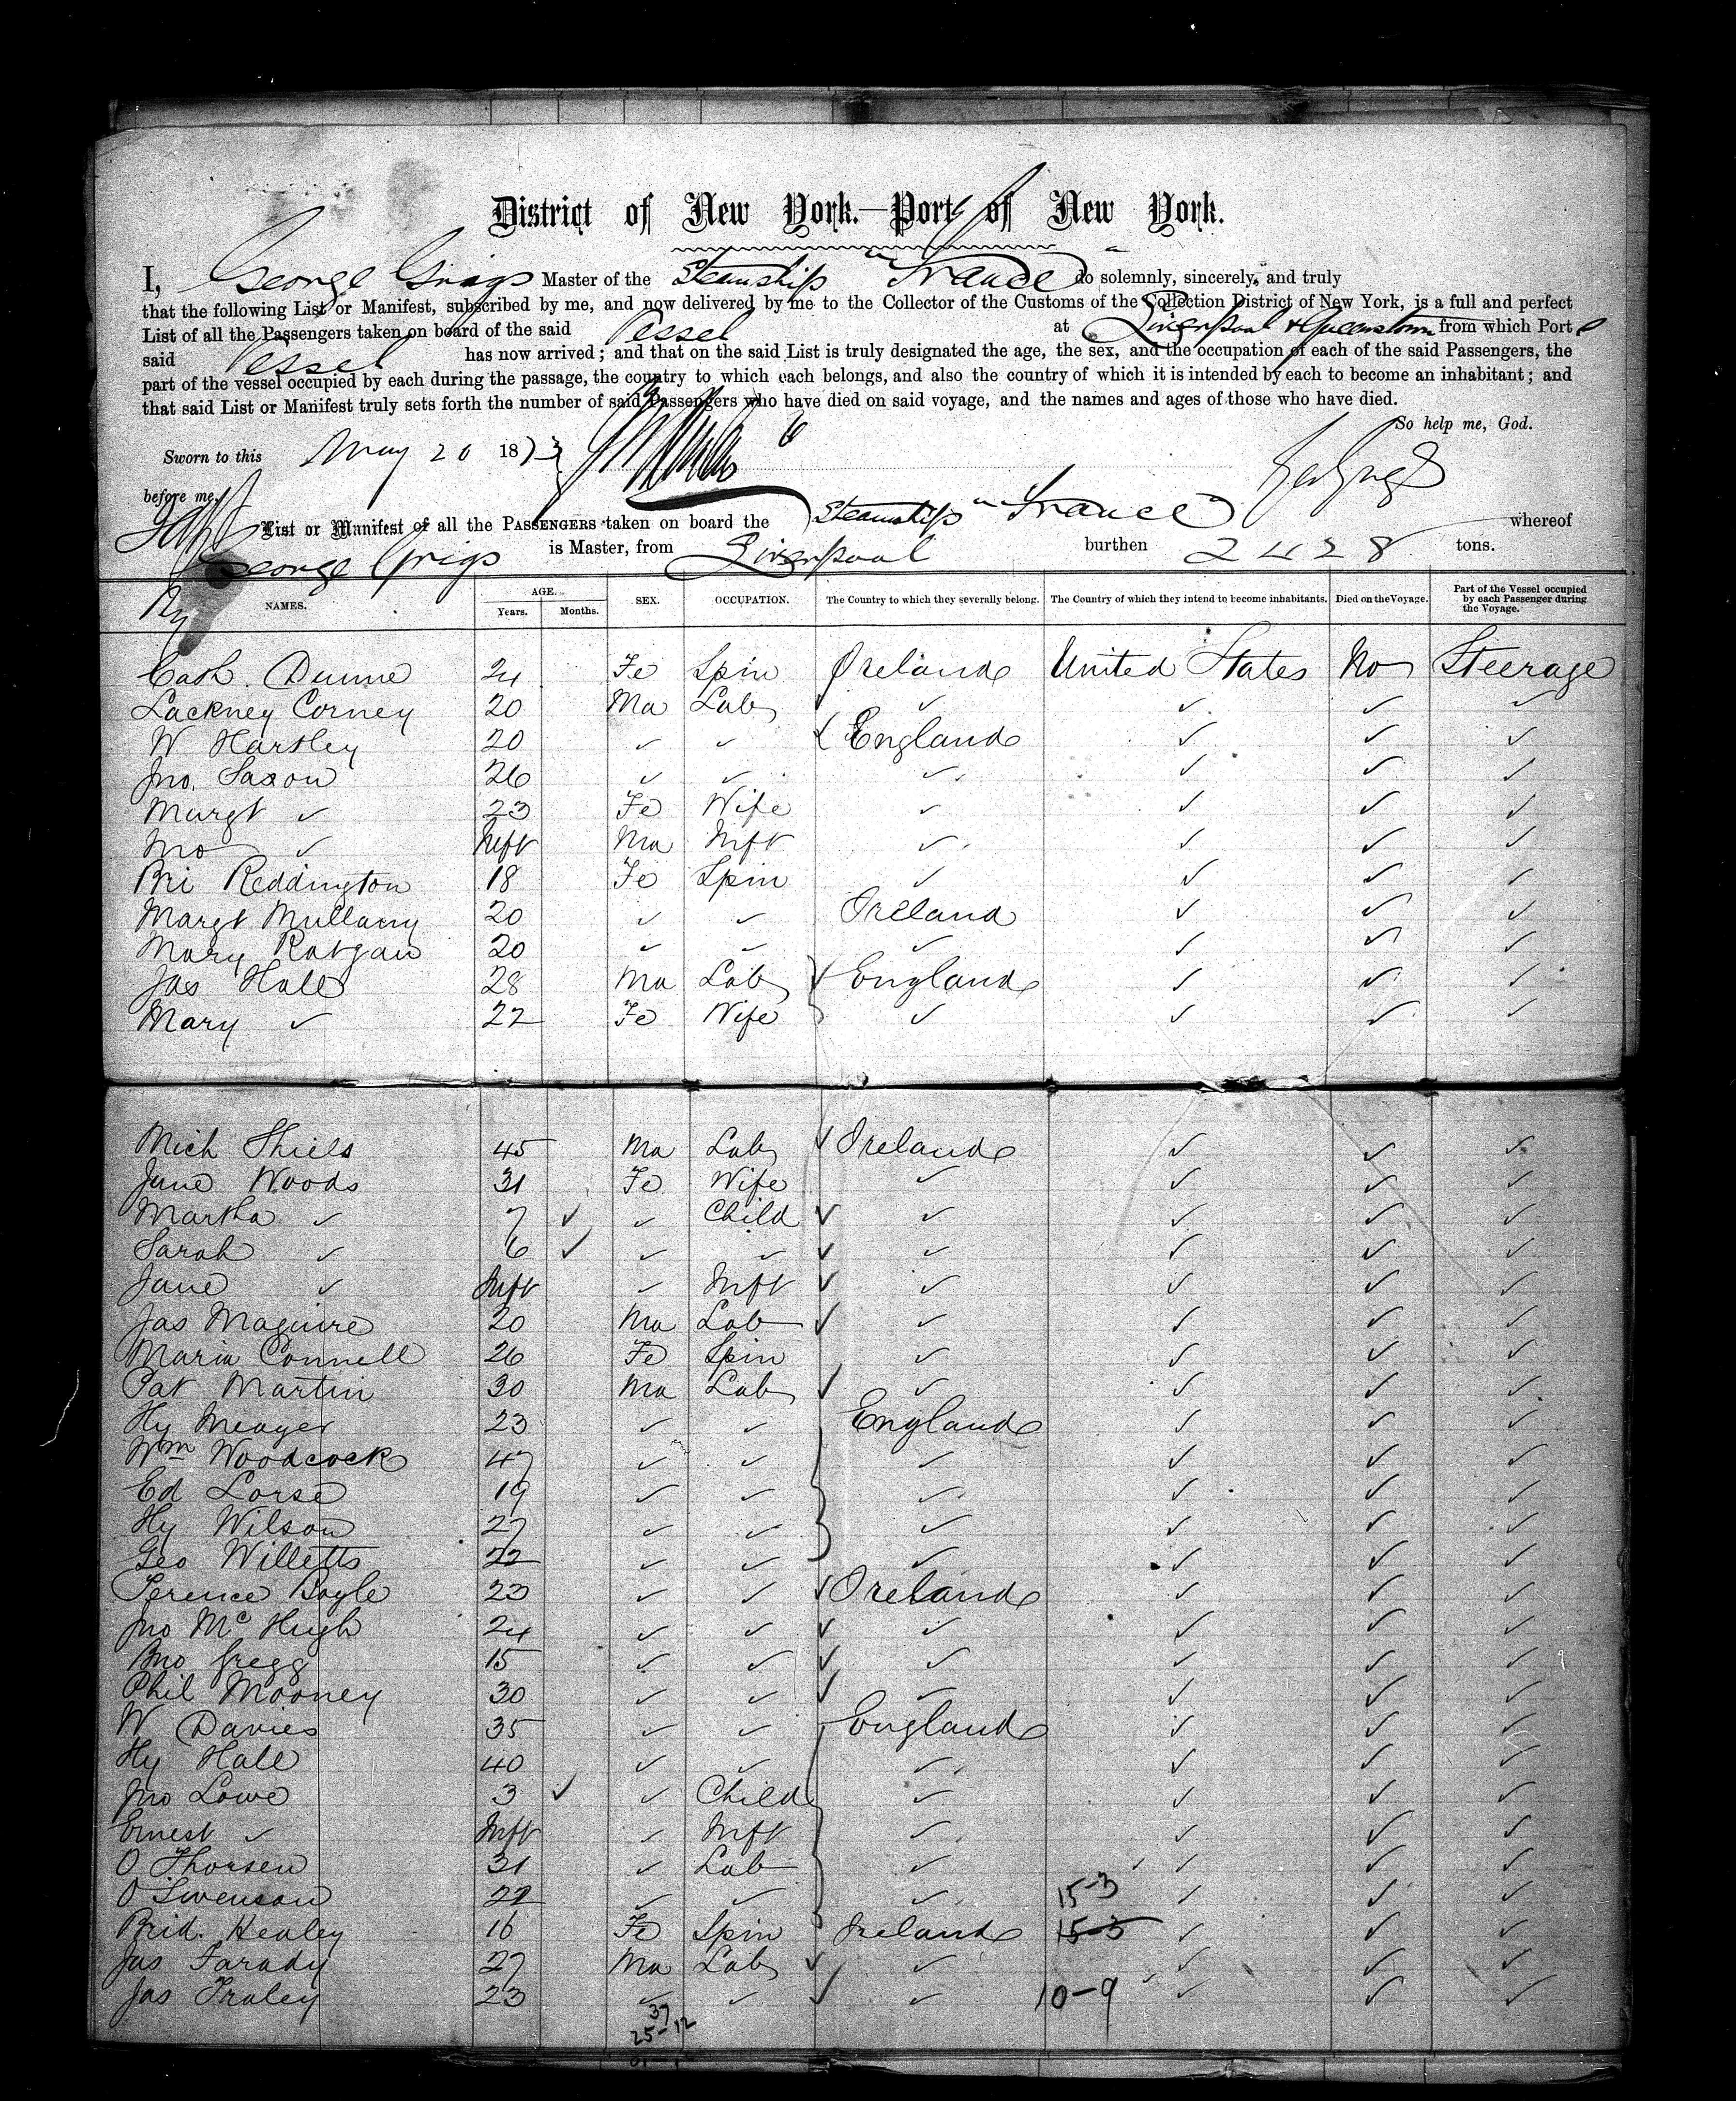 District of New York.—Port of New York.
I, George Grigs Master of the Steamship "France" do solemnly, sincerely, and truly
that the following List or Manifest, subscribed by me, and now delivered by me to the Collector of the Customs of the Collection District of New York, is a full and perfect
List of all the Passengers taken on board of the said Vessel at Liverpool & Queenstown from which Port
said Vessel has now arrived; and that on the said List is truly designated the age, the sex, and the occupation of each of the said Passengers, the
part of the vessel occupied by each during the passage, the country to which each belongs, and also the country of which it is intended by each to become an inhabitant; and
that said List or Manifest truly sets forth the number of said Passengers who have died on said voyage, and the names and ages of those who have died.
So help me, God.
Sworn to this May 20 1873
before me, Geo Grigs
List or Manifest of all the PASSENGERS taken on board the Steamship "France" whereof
George Grigs is Master, from Liverpool burthen 2428 tons.
NAMES. AGE. Years. Months. SEX. OCCUPATION. The Country to which they severally belong. The Country of which they intend to become inhabitants. Died on the Voyage. Part of the Vessel occupied by each Passenger during the Voyage.
Cath. Dunne 24 Fe Spin Ireland United States No Steerage
Lackney Corney 20 Ma Lab ✓ ✓ ✓ ✓
W Hartley 20 ✓ ✓ England ✓ ✓ ✓
Jno. Saxon 26 ✓ ✓ ✓ ✓ ✓ ✓
Margt ✓ 23 Fe Wife ✓ ✓ ✓ ✓
Jno ✓ Inft Ma Inft ✓ ✓ ✓ ✓
Bri Reddington 18 Fe Spin ✓ ✓ ✓ ✓
Margt Mullany 20 ✓ ✓ Ireland ✓ ✓ ✓
Mary Ratgan 20 ✓ ✓ ✓ ✓ ✓ ✓
Jas Hall 28 Ma Lab ✓ England ✓ ✓ ✓
Mary ✓ 22 Fe Wife ✓ ✓ ✓ ✓
Mich Shiels 45 Ma Lab ✓ Ireland ✓ ✓ ✓
Jane Woods 31 Fe Wife ✓ ✓ ✓ ✓
Martha ✓ 7 ✓ ✓ Child ✓ ✓ ✓ ✓ ✓
Sarah ✓ 6 ✓ ✓ ✓ ✓ ✓ ✓ ✓ ✓
Jane ✓ Inft ✓ Inft ✓ ✓ ✓ ✓ ✓
Jas Maguire 20 Ma Lab ✓ ✓ ✓ ✓ ✓
Maria Connell 26 Fe Spin ✓ ✓ ✓ ✓
Pat Martin 30 Ma Lab ✓ ✓ ✓ ✓ ✓
Hy Meager 23 ✓ ✓ England ✓ ✓ ✓
Wm Woodcock 47 ✓ ✓ ✓ ✓ ✓ ✓
Ed Lorse 19 ✓ ✓ ✓ ✓ ✓ ✓
Hy Wilson 27 ✓ ✓ ✓ ✓ ✓ ✓
Geo Willetts 22 ✓ ✓ ✓ ✓ ✓ ✓
Terence Boyle 23 ✓ ✓ ✓ Ireland ✓ ✓ ✓
Jno McHugh 24 ✓ ✓ ✓ ✓ ✓ ✓ ✓
Jno Gregg 15 ✓ ✓ ✓ ✓ ✓ ✓ ✓
Phil Mooney 30 ✓ ✓ ✓ ✓ ✓ ✓ ✓
W Davies 35 ✓ ✓ England ✓ ✓ ✓
Hy Hall 40 ✓ ✓ ✓ ✓ ✓ ✓
Jno Lowe 3 ✓ ✓ Child ✓ ✓ ✓ ✓
Ernest ✓ Inft ✓ Inft ✓ ✓ ✓ ✓
O Thorsen 31 ✓ Lab ✓ ✓ ✓ ✓
O Swenson 22 ✓ ✓ ✓ 15-3 ✓ ✓ ✓
Brid. Healey 16 Fe Spin Ireland 15-3 ✓ ✓ ✓
Jas Farady 27 Ma Lab ✓ ✓ ✓ ✓ ✓
Jas Fraley 23 ✓ ✓ ✓ ✓ 10-9 ✓ ✓ ✓
37
25-12